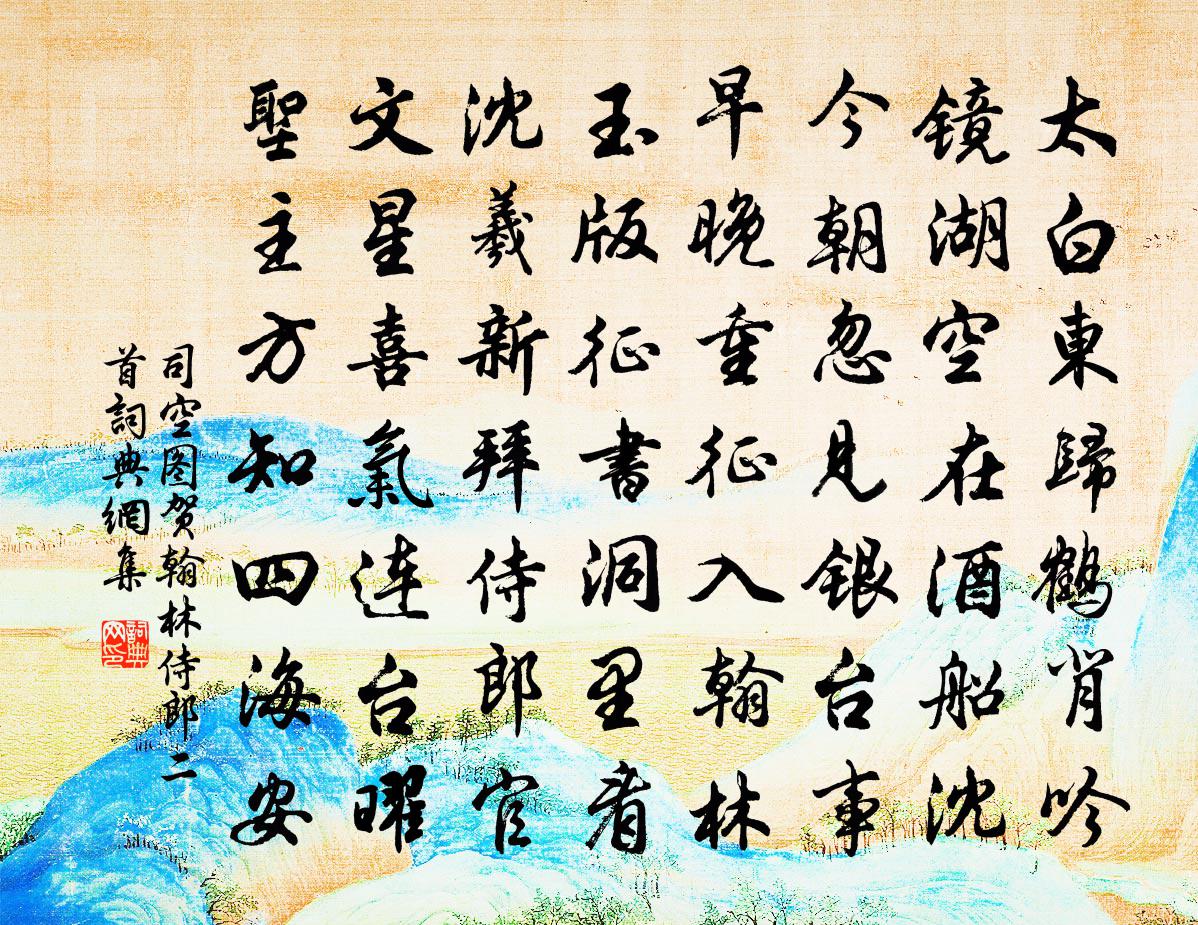 太白東歸鶴背吟
镜湖空在酒船沈
今朝忽見銀台事
早晚重征入翰林
玉版征書洞里看
沈羲新拜侍郎官
文星喜氣连台曜
聖主方知四海安
司空图贺翰林侍郎二
首詞典網集
詞典
网印